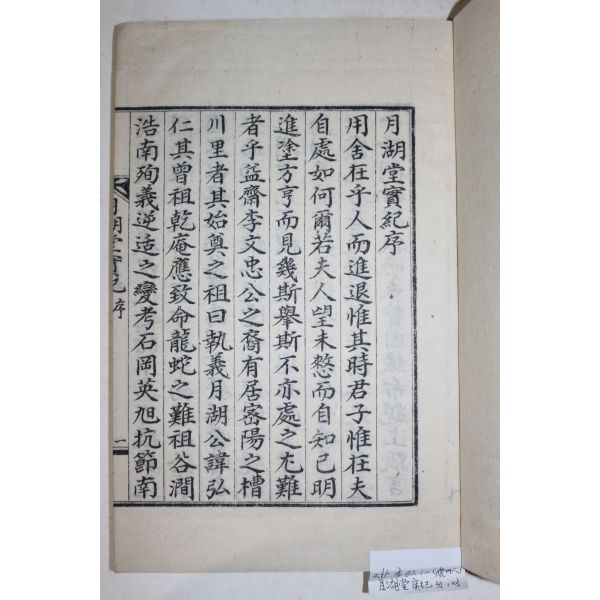 月湖堂實紀序
用舍在乎人而進退惟其時君子惟在夫
自處如何爾若夫人望未憗而自知已明
進塗方亨而見幾斯擧斯不亦處之尤難
者乎益齋李文忠公之裔有居密陽之槽
川里者其始奠之祖曰執義月湖公諱弘
仁其曾祖乾庵應致命龍蛇之難祖谷澗
浩南殉義逆适之變考石岡英旭抗節南
月湖堂實紀 序 一
月湖堂実紀